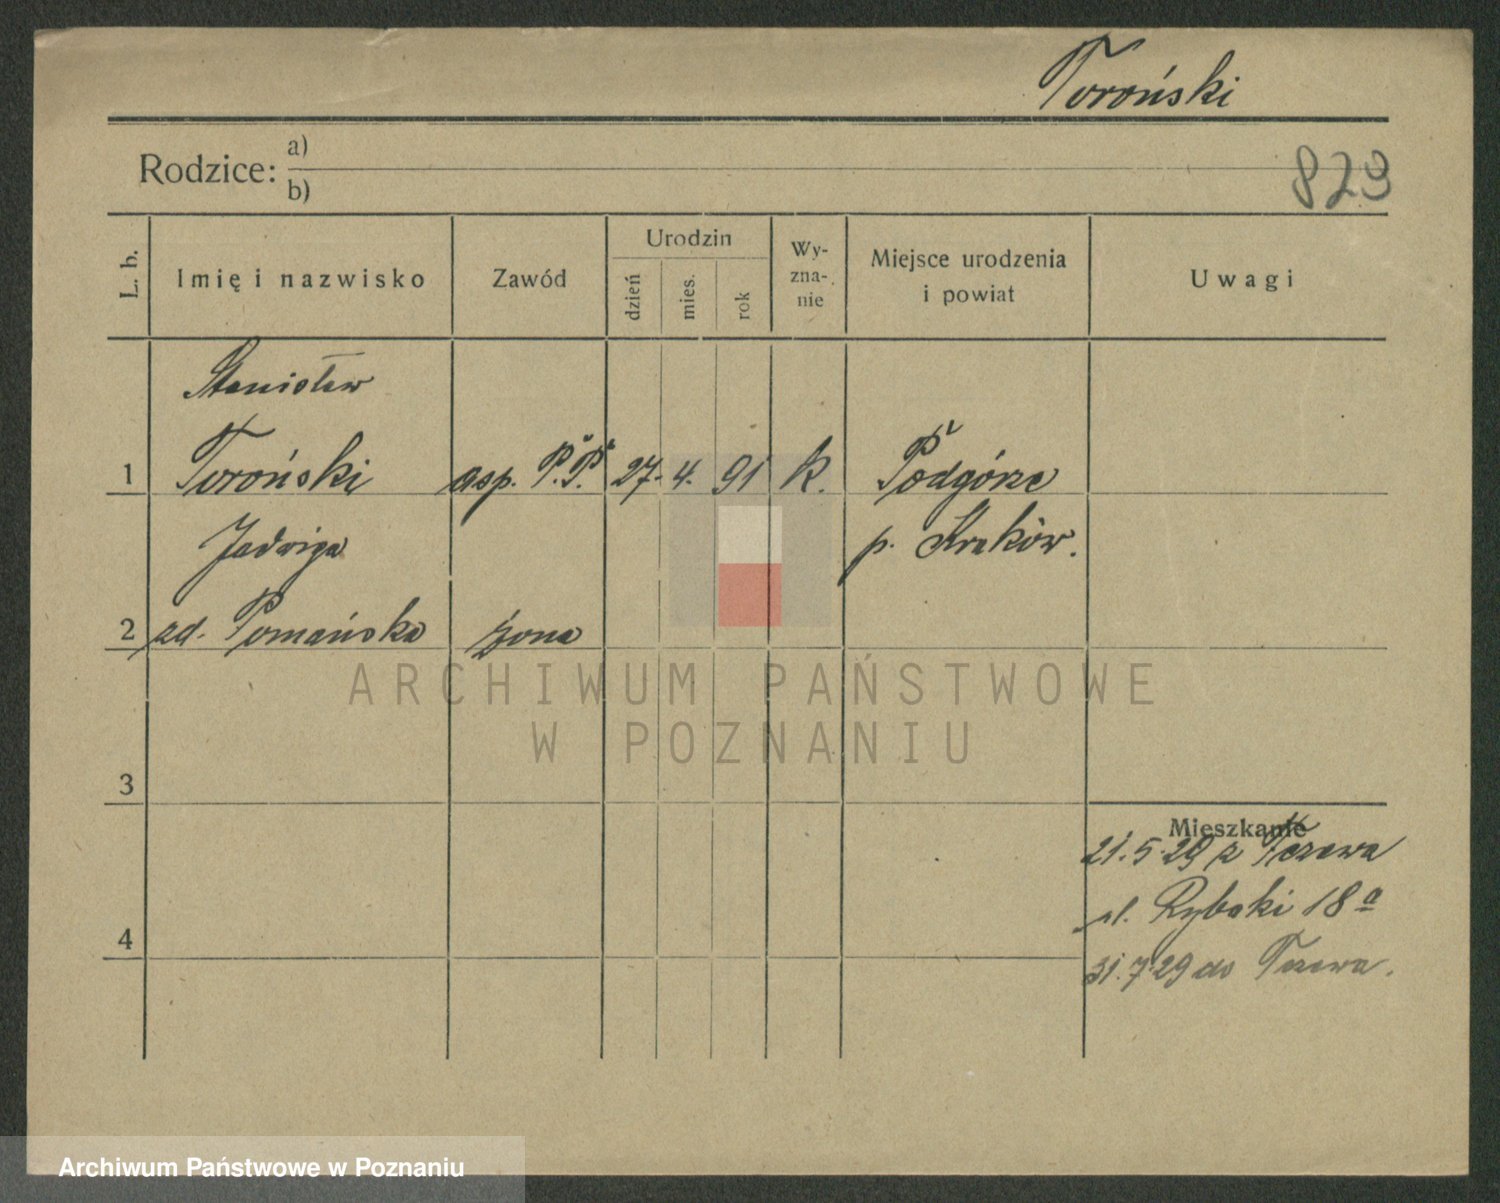 Toroński
Rodzice: a)
b)
823
L. b.
Imię i nazwisko
Zawód
Urodzin
dzień
mies.
rok
Wy-
zna-
nie
Miejsce urodzenia
i powiat
Uwagi
Stanisław
1 Toroński asp. P.P. 27. 4. 91 k. Podgórze
p. Kraków.
Jadwiga
2 zd. Pomańska żona
3
4
Mieszkanie
21.5.29 z Tczewa
ul. Rybaki 18a
31.7.29 do Tczewa.
ARCHIWUM PAŃSTWOWE
W POZNANIU
Archiwum Państwowe w Poznaniu